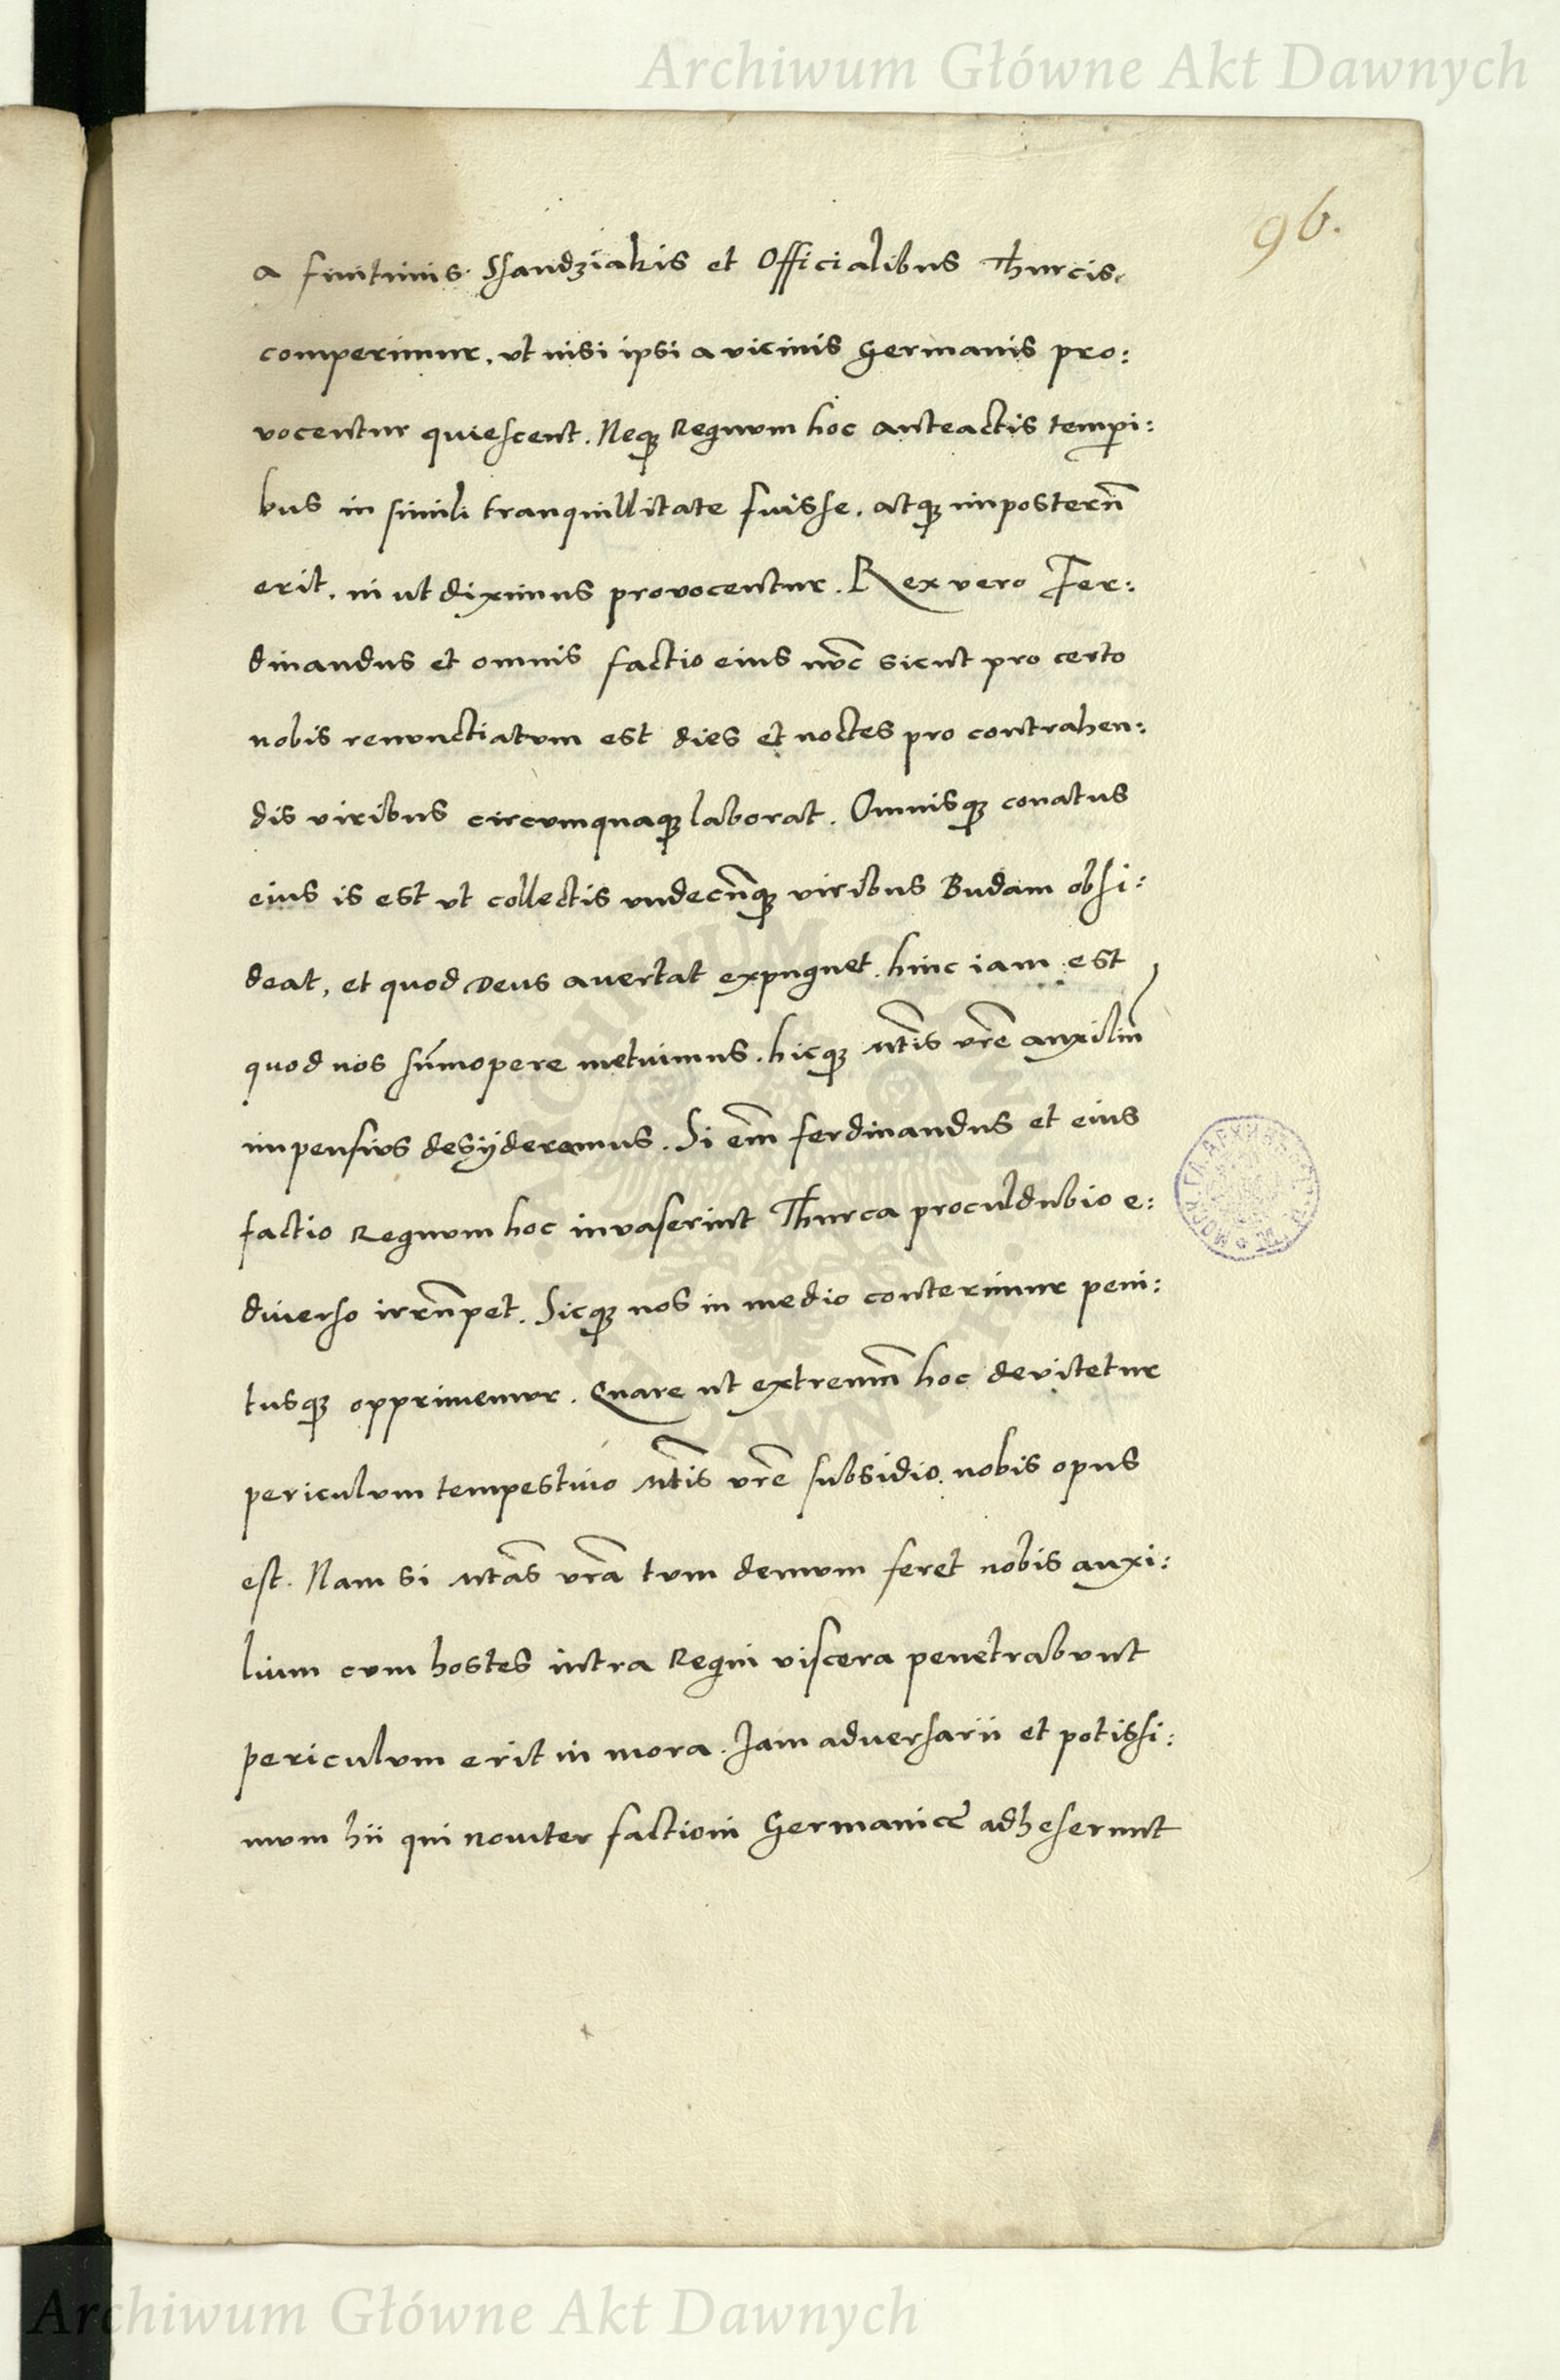 Archiwum Główne Akt Dawnych
96.
a finitimis Ssandziakis et Officialibus Thurcis
comperimur, ut nisi ipsi a vicinis Germanis pro:
vocentur quiescent. Neqꝫ Regnum hoc anteactis tempi:
bus in simili tranquillitate fuisse. atqꝫ imposterū
erit, ni ut diximus provocentur. Rex vero Fer:
dinandus et omnis factio eius nūc sicut pro certo
nobis renunctiatum est dies et noctes pro contrahen:
dis viribus circumquaqꝫ laborat. Omnisqꝫ conatus
eius is est ut collectis undecūqꝫ viribus Budam obsi:
deat, et quod Deus avertat expugnet. hinc iam est
quod nos sūmopere metuimus. hicqꝫ Mtis vrē auxiliū
impensius desyderamus. Si em̄ ferdinandus et eius
factio Regnum hoc invaserint Thurca proculdubio e:
diverso irrūpet. Sicqꝫ nos in medio conterimur peni:
tusqꝫ opprimemur. Quare ut extremū hoc devitetur
periculum tempestivo Mtis vrē subsidio nobis opus
est. Nam si Mtas vrā tum demum feret nobis auxi:
lium cum hostes intra Regni viscera penetrabunt
periculum erit in mora. Jam adversarii et potissi:
mum hii qui noviter factioni Germanicę adheserunt
Archiwum Główne Akt Dawnych